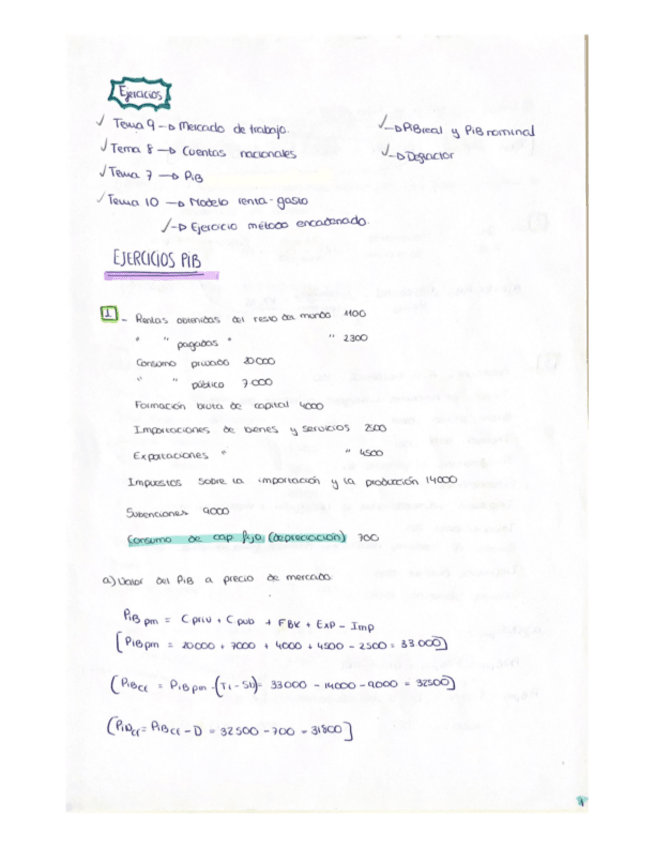 Ejercicios
✓ Tema 9 → Mercado de trabajo.
✓ → PiB real y PiB nominal
✓ Tema 8 → Cuentas nacionales
✓ → Deflactor
✓ Tema 7 → PiB
✓ Tema 10 → Modelo renta-gasto
✓ → Ejercicio método encadenado.
EJERCICIOS PiB
1 - Rentas obtenidas del resto del mundo 1100
" " pagadas " " 2300
Consumo privado 20000
" " público 7000
Formación bruta de capital 4000
Importaciones de bienes y servicios 2500
Exportaciones " " 4500
Impuestos sobre la importación y la producción 14000
Subvenciones 9000
Consumo de cap fijo (depreciación) 700
a) Valor del PiB a precio de mercado
PiB pm = C priv + C pub + FBK + Exp - Imp
[PiB pm = 20000 + 7000 + 4000 + 4500 - 2500 = 33000]
(PiBcf = PiB pm - (Ti - Sb) = 33000 - 14000 - 9000 = 32500)
(PiNcf = PiBcf - D = 32500 - 700 = 31800]
1